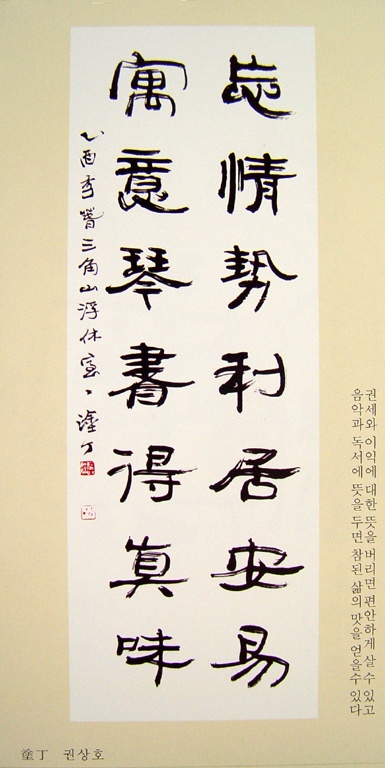 忘情勢利居安易
寓意琴書得眞味
乙酉季春三角山浮休室 塗丁
권세와 이익에 대한 뜻을 버리면 편안하게 살 수 있고
음악과 독서에 뜻을 두면 참된 삶의 맛을 얻을수 있다
塗丁 권상호